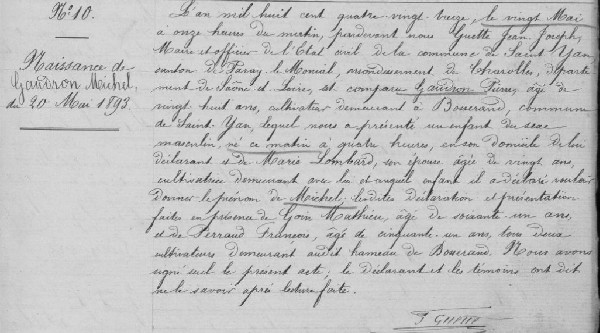 N° 10.
Naissance de
Gaudron Michel,
du 20 Mai 1893
L'an mil huit cent quatre-vingt-treize, le vingt Mai
à onze heures du matin, pardevant nous Guette Jean Joseph,
Maire et officier de l'Etat civil de la commune de Saint Yan
canton de Paray le Monial, arrondissement de Charolles, départe-
ment de Saône et Loire, est comparu Gaudron Pierre, âgé de
vingt huit ans, cultivateur demeurant à Bouerand, commune
de Saint-Yan, lequel nous a présenté un enfant du sexe
masculin, né ce matin à quatre heures, en son domicile de lui
déclarant et de Marie Lombard, son épouse âgée de vingt ans,
cultivatrice demeurant avec lui et auquel enfant il a déclaré vouloir
donner le prénom de Michel; lesdites déclaration et présentation
faites en présence de Goin Mathieu, âgé de soixante un ans,
et de Perraud François, âgé de cinquante-un ans, tous deux
cultivateurs demeurant audit hameau de Bouerand. Nous avons
signé seul le présent acte; le déclarant et les témoins ont dit
ne le savoir après lecture faite.
J Guette